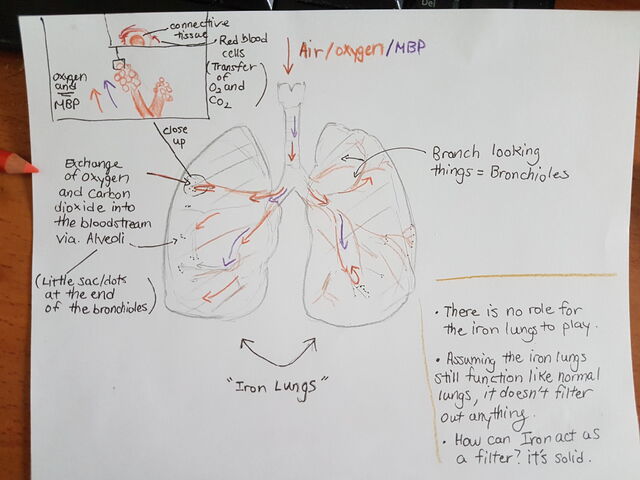 connective
tissue
Red blood
cells
(Transfer
of
O2 and
CO2)
oxygen
and
MBP
close
up
Air/oxygen/MBP
Exchange
of oxygen
and carbon
dioxide into
the bloodstream
via. Alveoli
(Little sac/dots
at the end
of the bronchioles)
Branch looking
things = Bronchioles
"Iron Lungs"
• There is no role for
the iron lungs to play.
• Assuming the iron lungs
still function like normal
lungs, it doesn't filter
out anything.
• How can Iron act as
a filter? it's solid.
Del